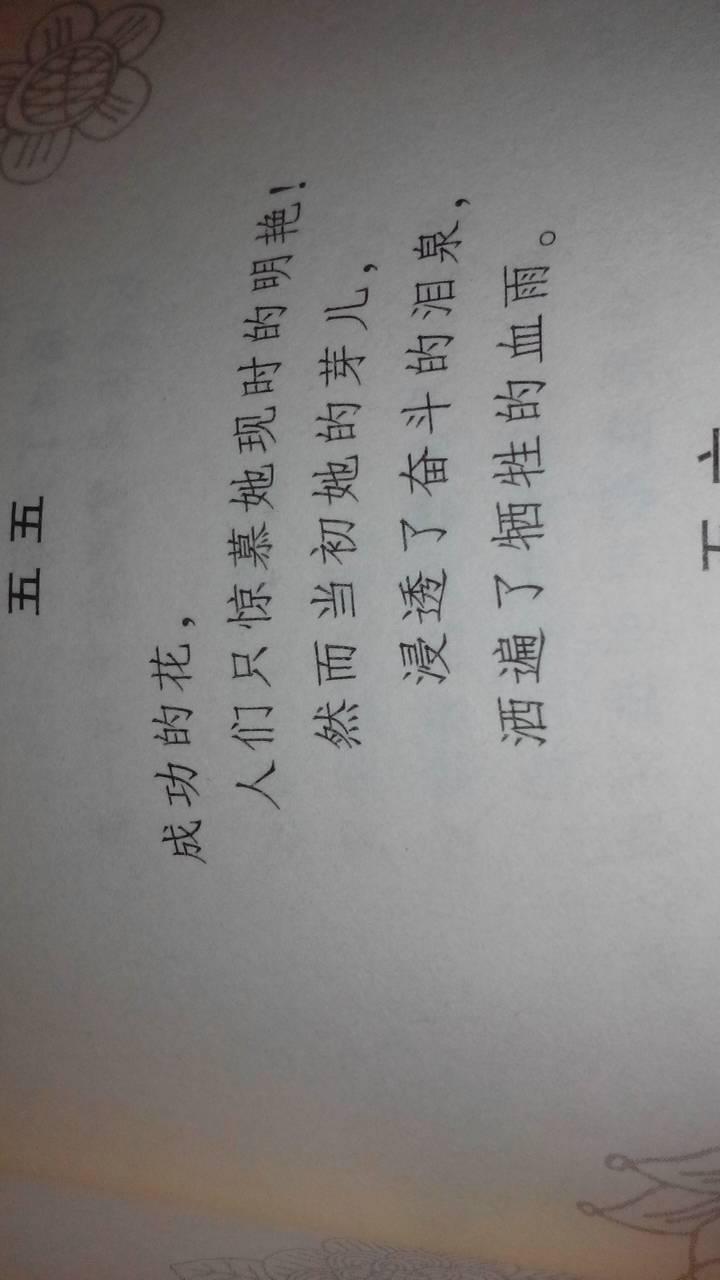 五五
成功的花，
人们只惊慕她现时的明艳！
然而当初她的芽儿，
浸透了奋斗的泪泉，
洒遍了牺牲的血雨。